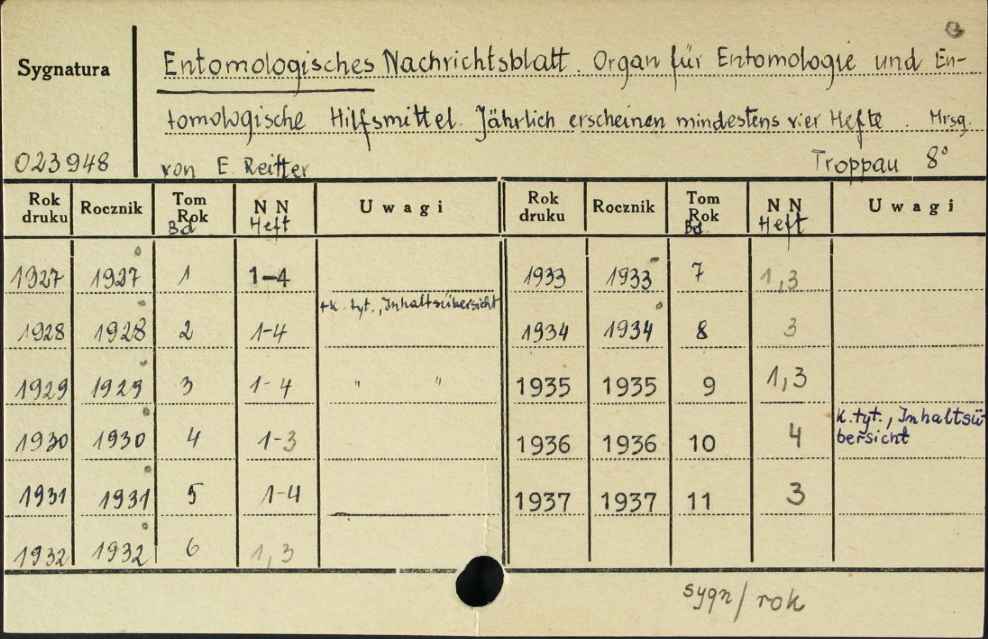 Sygnatura
Entomologisches Nachrichtsblatt. Organ für Entomologie und En-
tomologische Hilfsmittel. Jährlich erscheinen mindestens vier Hefte. Hrsg.
023948 von E. Reitter Troppau 8°
Rok druku Rocznik Tom Rok Bd. N N Heft Uwagi Rok druku Rocznik Tom Rok Bd. N N Heft Uwagi
1927 1927 1 1-4 1933 1933 7 1,3
+k. tyt., Inhaltsübersicht
1928 1928 2 1-4 1934 1934 8 3
1929 1929 3 1-4 " " 1935 1935 9 1,3
1930 1930 4 1-3 1936 1936 10 4 k. tyt., Inhaltsü
bersicht
1931 1931 5 1-4 1937 1937 11 3
1932 1932 6 1,3
sygn/rok